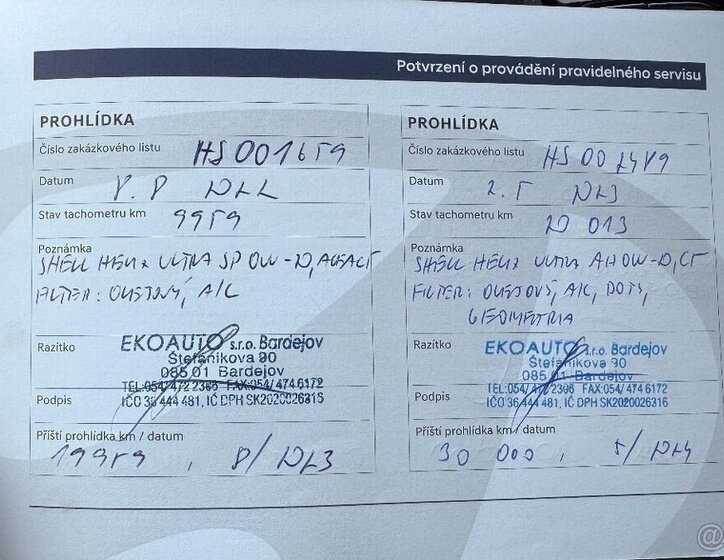 Potvrzení o provádění pravidelného servisu
PROHLÍDKA
Číslo zakázkového listu HS001659
Datum 8.8 2022
Stav tachometru km 9959
Poznámka
SHELL HELIX ULTRA SP 0W-20,
FILTER: OLEJOVÝ, A/C
Razítko
EKOAUTO s.r.o. Bardejov
Štefánikova 90
085 01 Bardejov
TEL:054/472 2366 FAX:054/474 6172
Podpis
IČO 36 444 481, IČ DPH SK2020026315
Příští prohlídka km / datum
19959, 8/2023
PROHLÍDKA
Číslo zakázkového listu HS002489
Datum 2.5 2023
Stav tachometru km 20 013
Poznámka
SHELL HELIX ULTRA AH 0W-20,
FILTER: OLEJOVÝ, A/C, DOT4,
GEOMETRIA
Razítko
EKOAUTO s.r.o. Bardejov
Štefánikova 90
085 01 Bardejov
TEL:054/472 2366 FAX:054/474 6172
Podpis
IČO 36 444 481, IČ DPH SK2020026315
Příští prohlídka km / datum
30 000, 5/2024